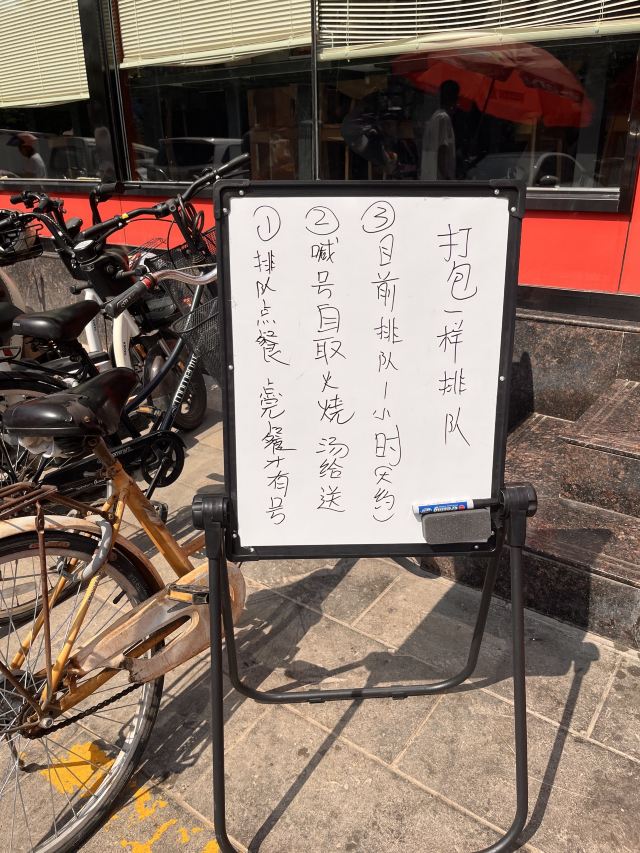 ①排队点餐 点完餐才有号
②喊号自取火烧 汤给送
③目前排队1小时(大约)
打包一样排队